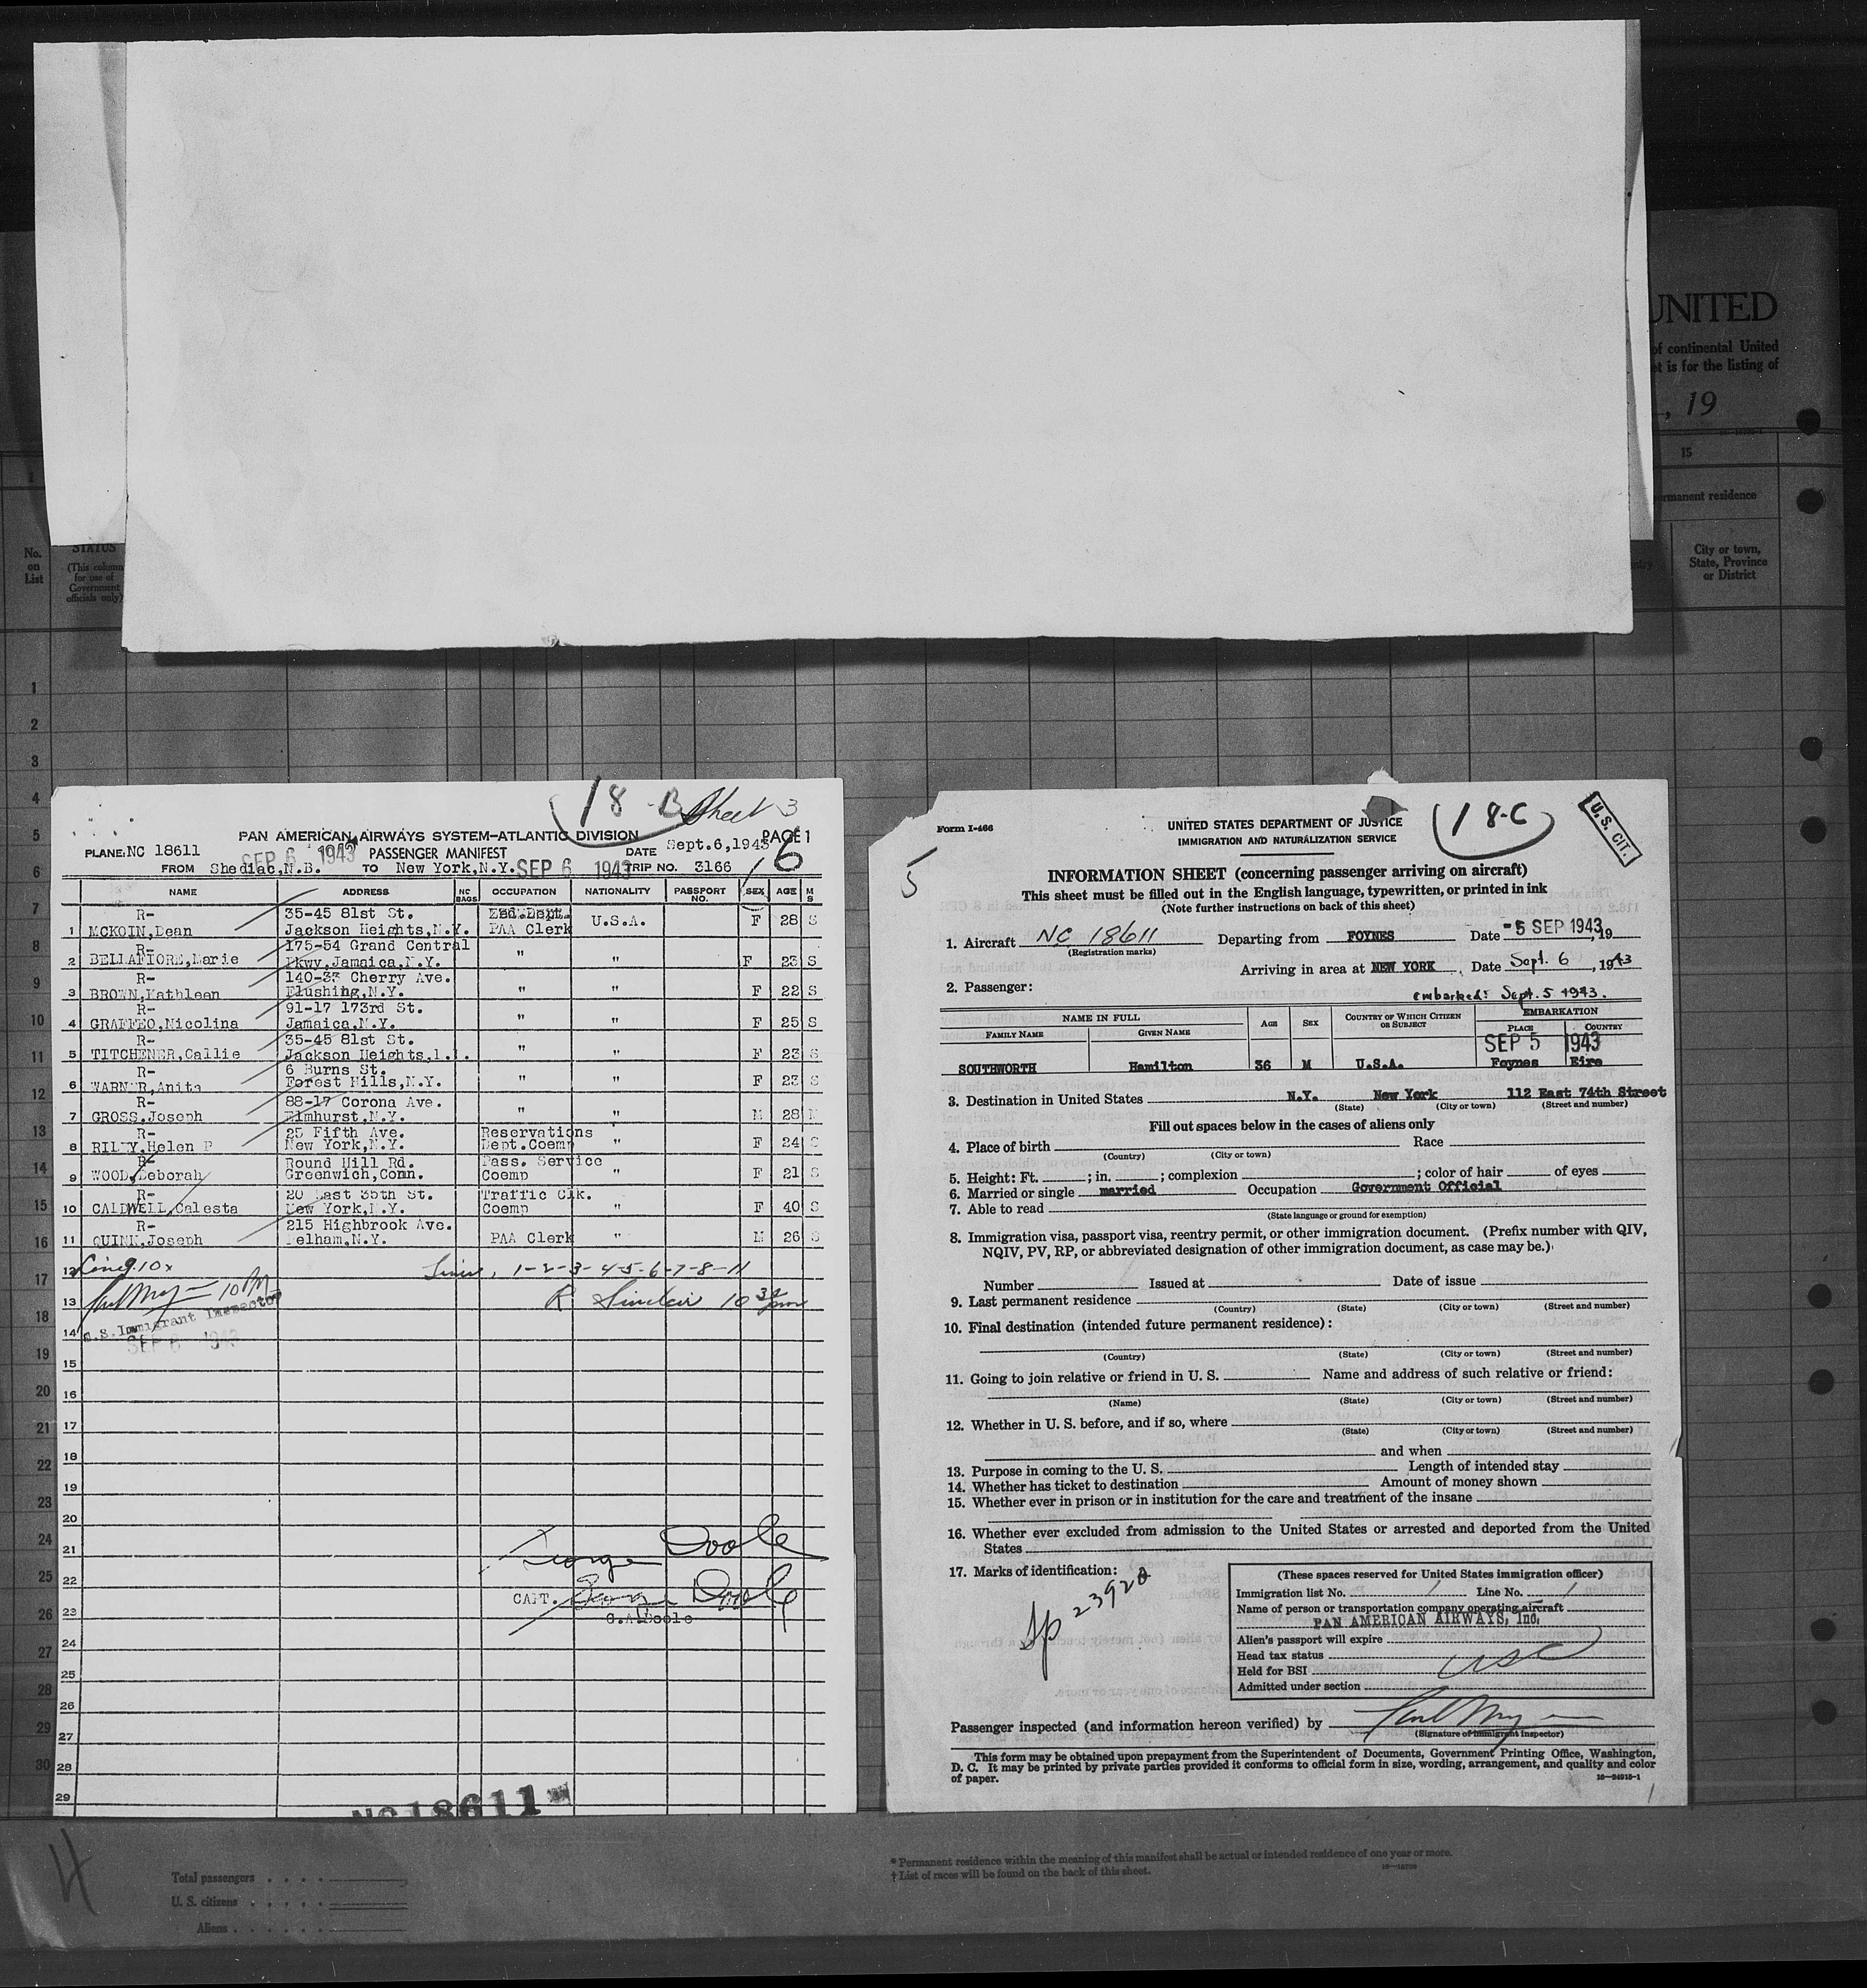 UNITED
of continental United
et is for the listing of
, 19
15
ermanent residence
No.
on
List
STATUS
(This column
for use of
Government
officials only)
City or town,
State, Province
or District
1
2
3
4
5
6
7
8
9
10
11
12
13
14
15
16
17
18
19
20
21
22
23
24
25
26
27
28
29
30
18-B Sheet 3
PAN AMERICAN AIRWAYS SYSTEM-ATLANTIC DIVISION PAGE 1
PLANE: NC 18611 SEP 6 1943 PASSENGER MANIFEST DATE Sept.6,1943 6
FROM Shediac,N.B. TO New York,N.Y. SEP 6 1943 TRIP NO. 3166
NAME ADDRESS NC BAGS OCCUPATION NATIONALITY PASSPORT NO. SEX AGE M S
R- 35-45 81st St.
1 MCKOIN,Dean Jackson Heights,N.Y. PAA Clerk U.S.A. F 28 S
R- 175-54 Grand Central
2 BELLAFIORE,Marie Pkwy,Jamaica,N.Y. " " F 23 S
R- 140-33 Cherry Ave.
3 BROWN,Kathleen Flushing,N.Y. " " F 22 S
R- 91-17 173rd St.
4 GRAFFEO,Nicolina Jamaica,N.Y. " " F 25 S
R- 35-45 81st St.
5 TITCHENER,Callie Jackson Heights, " " F 23 S
R- 6 Burns St.
6 WARNER,Anita Forest Hills,N.Y. " " F 23 S
R- 88-17 Corona Ave.
7 GROSS,Joseph Elmhurst,N.Y. " " M 28 M
R- 25 Fifth Ave. Reservations
8 RILEY,Helen P New York,N.Y. Dept.Coemp " F 24 S
R- Round Hill Rd. Pass. Service
9 WOOD,Deborah Greenwich,Conn. Coemp " F 21 S
R- 20 East 35th St. Traffic Clk.
10 CALDWELL,Calesta New York,N.Y. Coemp " F 40 S
R- 215 Highbrook Ave.
11 QUINN,Joseph Pelham,N.Y. PAA Clerk " M 26 S
12 Lines, 1-2-3-4-5-6-7-8-11
13 10 PM R Sinclair 10 30 pm
14 U.S.Immigrant Inspector
SEP 6 1943
15
16
17
18
19
20
21
22
23
24
25
26
27
28
29
George Doole
CAPT. George Doole
G.A.Doole
NC18611
5
18-C
U.S. CIT.
Form I-466
UNITED STATES DEPARTMENT OF JUSTICE
IMMIGRATION AND NATURALIZATION SERVICE
INFORMATION SHEET (concerning passenger arriving on aircraft)
This sheet must be filled out in the English language, typewritten, or printed in ink
(Note further instructions on back of this sheet)
1. Aircraft NC 18611 Departing from FOYNES Date -5 SEP 1943, 19
(Registration marks)
Arriving in area at NEW YORK, Date Sept. 6, 1943
2. Passenger:
embarked: Sept. 5 1943.
NAME IN FULL AGE SEX COUNTRY OF WHICH CITIZEN OR SUBJECT EMBARKATION
FAMILY NAME GIVEN NAME PLACE COUNTRY
SEP 5 1943
SOUTHWORTH Hamilton 36 M U.S.A. Foynes Eire
3. Destination in United States N.Y. New York 112 East 74th Street
(State) (City or town) (Street and number)
Fill out spaces below in the cases of aliens only
4. Place of birth Race
(Country) (City or town)
5. Height: Ft. ; in. ; complexion ; color of hair of eyes
6. Married or single married Occupation Government Official
7. Able to read
(State language or ground for exemption)
8. Immigration visa, passport visa, reentry permit, or other immigration document. (Prefix number with QIV,
NQIV, PV, RP, or abbreviated designation of other immigration document, as case may be.)
Number Issued at Date of issue
9. Last permanent residence
(Country) (State) (City or town) (Street and number)
10. Final destination (intended future permanent residence):
(Country) (State) (City or town) (Street and number)
11. Going to join relative or friend in U. S. Name and address of such relative or friend:
(Name) (State) (City or town) (Street and number)
12. Whether in U. S. before, and if so, where
(State) (City or town) (Street and number)
and when
13. Purpose in coming to the U. S. Length of intended stay
14. Whether has ticket to destination Amount of money shown
15. Whether ever in prison or in institution for the care and treatment of the insane
16. Whether ever excluded from admission to the United States or arrested and deported from the United
States
17. Marks of identification:
(These spaces reserved for United States immigration officer)
Immigration list No. 1 Line No. 1
Name of person or transportation company operating aircraft
PAN AMERICAN AIRWAYS, Inc.
Alien's passport will expire
Head tax status
Held for BSI USC
Admitted under section
Passenger inspected (and information hereon verified) by
(Signature of immigrant inspector)
This form may be obtained upon prepayment from the Superintendent of Documents, Government Printing Office, Washington,
D. C. It may be printed by private parties provided it conforms to official form in size, wording, arrangement, and quality and color
of paper.
16-24915-1
4
Total passengers
U. S. citizens
Aliens
* Permanent residence within the meaning of this manifest shall be actual or intended residence of one year or more.
† List of races will be found on the back of this sheet.